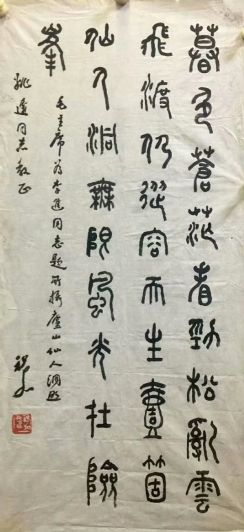 暮色蒼茫看勁松亂雲
飛渡仍從容天生壹箇
仙人洞無限風光在險
峯
毛主席為李進同志題所攝廬山仙人洞照
同志教正